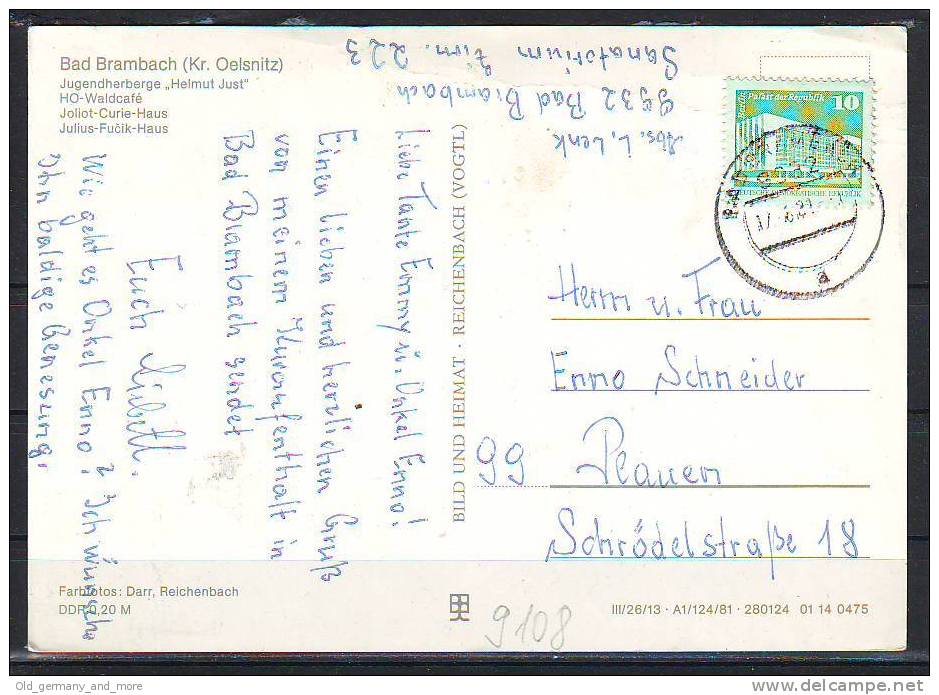 Bad Brambach (Kr. Oelsnitz)
Jugendherberge „Helmut Just"
HO-Waldcafé
Joliot-Curie-Haus
Julius-Fučik-Haus
Abs. L. Lenk
9932 Bad Brambach
Sanatorium Zim. 223
Liebe Tante Emmy u. Onkel Enno!
Einen lieben und herzlichen Gruß
von meinem Kuraufenthalt in
Bad Brambach sendet
Euch
Wie geht es Onkel Enno? Ich wünsche
Ihm baldige Genesung.
BILD UND HEIMAT · REICHENBACH (VOGTL)
Berlin Palast der Republik 10
DEUTSCHE DEMOKRATISCHE REPUBLIK
a
Herrn u. Frau
Enno Schneider
99 Plauen
Schrödelstraße 18
Farbfotos: Darr, Reichenbach
DDR 0,20 M
III/26/13 · A1/124/81 · 280124 01 14 0475
9108
Old_germany_and_more
www.delcampe.net